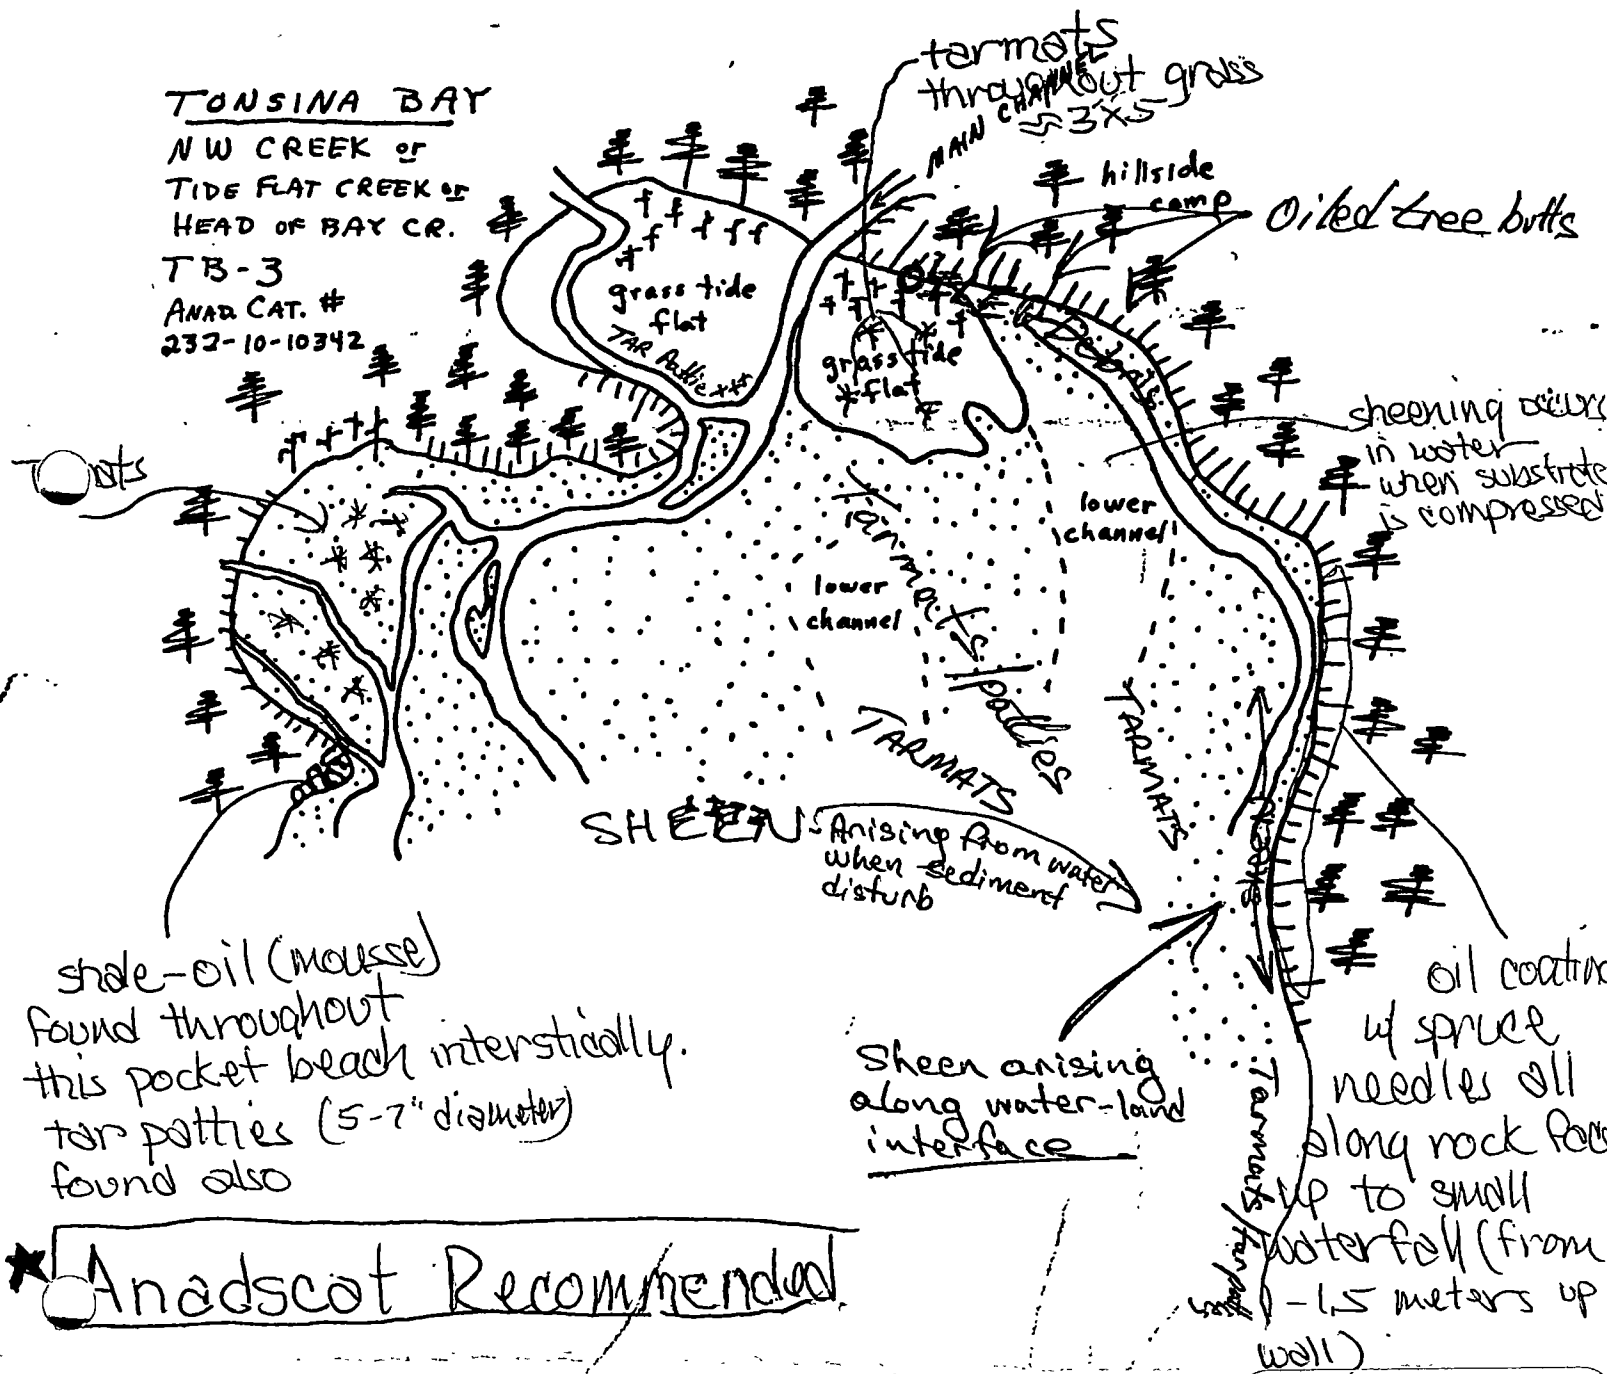 TONSINA BAY
NW CREEK or
TIDE FLAT CREEK or
HEAD OF BAY CR.
TB-3
ANAD. CAT. #
232-10-10342
tarmats
throughout grass
≈ 3x5
MAIN CHANNEL
hillside
camp
Oiled tree butts
grass tide
flat
TAR Pattie
grass tide
flat
Debris
sheening occurs
in water
when substrate
is compressed
lower
channel
lower
channel
Tarmats/patties
TARMATS
TARMATS
SHEEN
Arising from water
when sediment
disturb
shale-oil (mousse)
found throughout
this pocket beach interstically.
tar patties (5-7" diameter)
found also
Sheen arising
along water-land
interface
Tarmats/tar patties
oil coatin
w/ spruce
needles all
along rock face
up to small
waterfall (from
-1.5 meters up
wall)
Anadscat Recommended